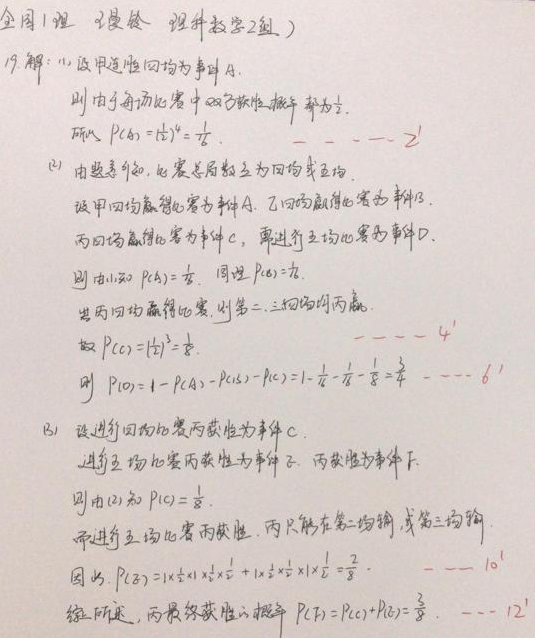 全国1理 理科数学2组）
19.解：(1) 设甲连胜四场为事件A.
则由于每场比赛中双方获胜概率都为1/2.
所以 P(A)=(1/2)^4=1/16. - - - - - 2'
(2) 由题意可知,比赛总局数应为四场或五场.
设甲四场赢得比赛为事件A. 乙四场赢得比赛为事件B.
丙四场赢得比赛为事件C, 需进行五场比赛为事件D.
则由(1)知 P(A)=1/16. 同理P(B)=1/16.
当丙四场赢得比赛,则第二.三.四场均丙赢.
故 P(C)=(1/2)^3=1/8. - - - - 4'
则 P(D)=1-P(A)-P(B)-P(C)=1-1/16-1/16-1/8=3/4 - - - - 6'
(3) 设进行四场比赛丙获胜为事件C.
进行五场比赛丙获胜为事件E. 丙获胜为事件F.
则由(2)知 P(C)=1/8.
而进行五场比赛丙获胜,丙只能在第二场输,或第三场输
因此.P(E)=1×1/2×1×1/2×1/2+1×1/2×1/2×1×1/2=2/8. - - - 10'
综上所述,丙最终获胜的概率 P(F)=P(C)+P(E)=3/8. - - - 12'